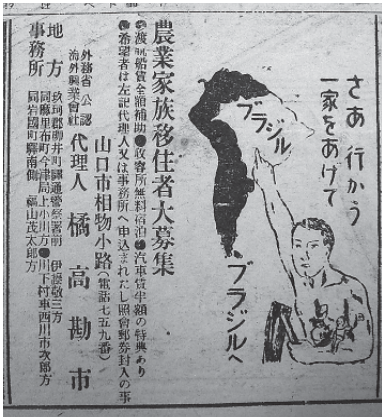 さあ 行かう
一家をあげて
ブラジル
ブラジルへ
農業家族移住者大募集
●渡航船賃全額補助●收容所無料宿泊●汽車賃半額の特典あり
●希望者は左記代理人又は事務所へ申込まれたし照會郵券封入の事
山口市相物小路(電話七五九番)
外務省公認
海外興業會社
代理人 橘高勘市
地方
事務所
玖珂郡柳井町 警察署前 伊 敬三方
同麻里布町今津局上小川方●川下村車西川市次郎方
同岩國町驛南側 福山茂太郎方